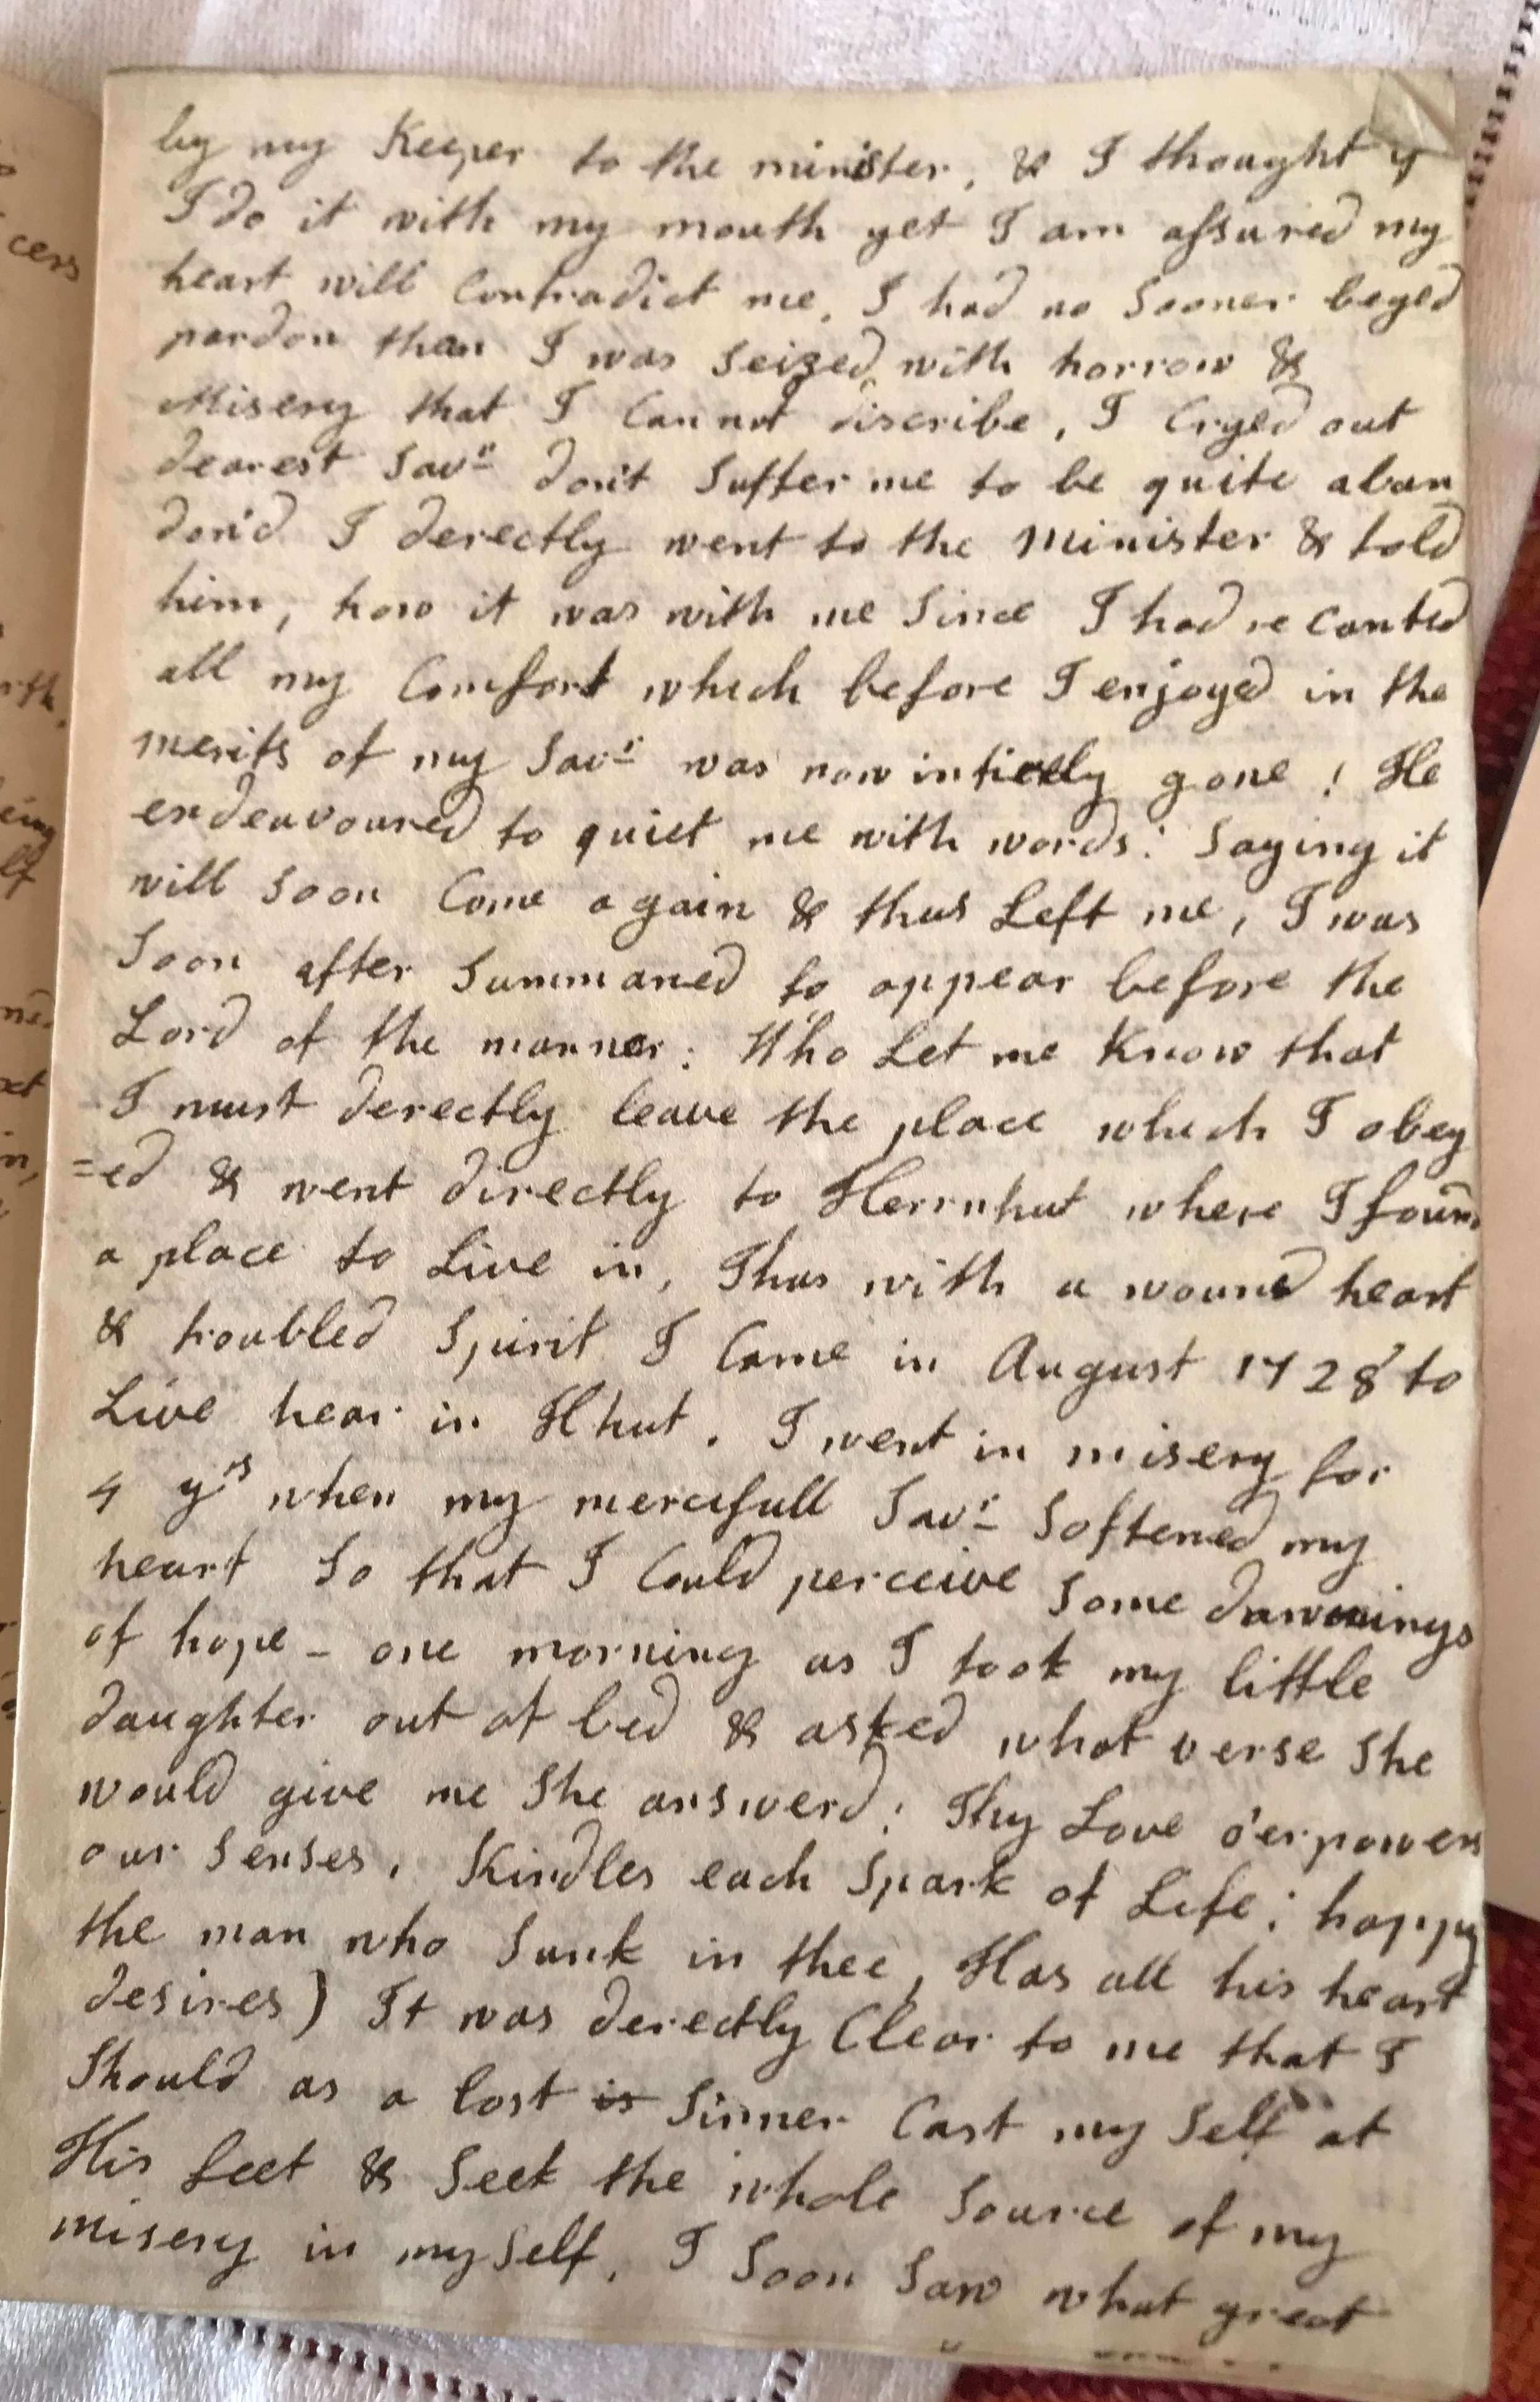 by my Keeper to the minister, & I thought if
I do it with my mouth yet I am assured my
heart will Contradict me, I had no Sooner beged
pardon than I was Seized with horrow &
Misery that I Cannot discribe, I Cryed out
dearest Savr don't Suffer me to be quite aban
don'd I derectly went to the Minister & told
him, how it was with me Since I had recanted
all my Comfort which before I enjoyed in the
merits of my Savr was now intierly gone! He
endeavoured to quiet me with words: Saying it
will Soon Come again & thus Left me, I was
Soon after Summaned to appear before the
Lord of the manner: Who Let me Know that
I must derectly leave the place which I obey
=ed & went directly to Herrnhut where I found
a place to Live in, Thus with a wound heart
& troubled Spirit I Came in August 1728 to
Live hear in Hhut. I went in misery for
4 yrs when my mercifull Savr Softened my
heart So that I Could perceive Some dawnings
of hope - one morning as I took my little
daughter out of bed & asked what verse She
would give me She answerd: Thy Love o'erpowers
our Senses, Kindles each Spark of Life; happy
the man who Sunk in thee, Has all his heart
desires) It was derectly Clear to me that I
Should as a lost is Sinner Cast my Self at
His feet & Seek the whole Source of my
misery in my Self, I Soon Saw what great
cers
rth,
eing
lf
in,